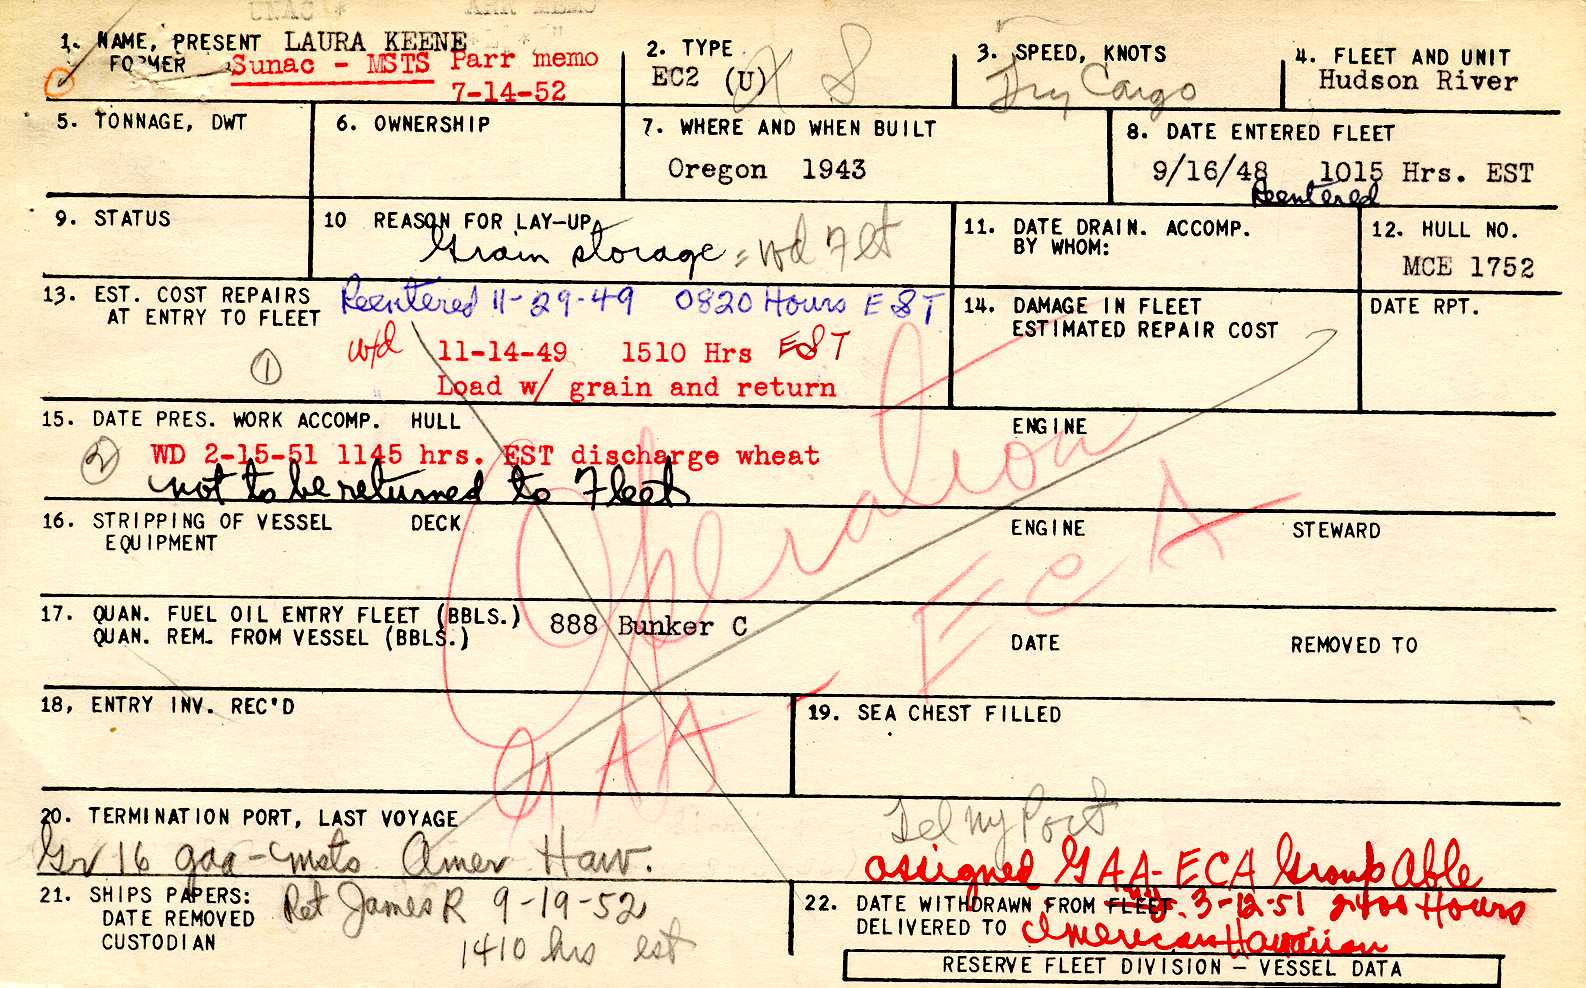 1. NAME, PRESENT LAURA KEENE
FORMER Sunac - MSTS Parr memo
7-14-52
2. TYPE
EC2 (U) X S
3. SPEED, KNOTS
Dry Cargo
4. FLEET AND UNIT
Hudson River
5. TONNAGE, DWT
6. OWNERSHIP
7. WHERE AND WHEN BUILT
Oregon 1943
8. DATE ENTERED FLEET
9/16/48 1015 Hrs. EST
Reentered
9. STATUS
10 REASON FOR LAY-UP
Grain storage = Wd Flt
11. DATE DRAIN. ACCOMP.
BY WHOM:
12. HULL NO.
MCE 1752
13. EST. COST REPAIRS
AT ENTRY TO FLEET
Reentered 11-29-49 0820 Hours EST
1
w/d 11-14-49 1510 Hrs EST
Load w/ grain and return
14. DAMAGE IN FLEET
ESTIMATED REPAIR COST
DATE RPT.
15. DATE PRES. WORK ACCOMP. HULL
ENGINE
2 WD 2-15-51 1145 hrs. EST discharge wheat
not to be returned to Fleet
Operation
GAA - ECA
16. STRIPPING OF VESSEL DECK
EQUIPMENT
ENGINE
STEWARD
17. QUAN. FUEL OIL ENTRY FLEET (BBLS.) 888 Bunker C
QUAN. REM. FROM VESSEL (BBLS.)
DATE
REMOVED TO
18, ENTRY INV. REC'D
19. SEA CHEST FILLED
20. TERMINATION PORT, LAST VOYAGE
Gr 16 gaa-msts Amer Haw.
Del NY Port
assigned GAA-ECA Group Able
21. SHIPS PAPERS:
DATE REMOVED
CUSTODIAN
Ret James R 9-19-52
1410 hrs est
22. DATE WITHDRAWN FROM FLEET 3-12-51 2400 Hours
DELIVERED TO American Hawaiian
RESERVE FLEET DIVISION - VESSEL DATA